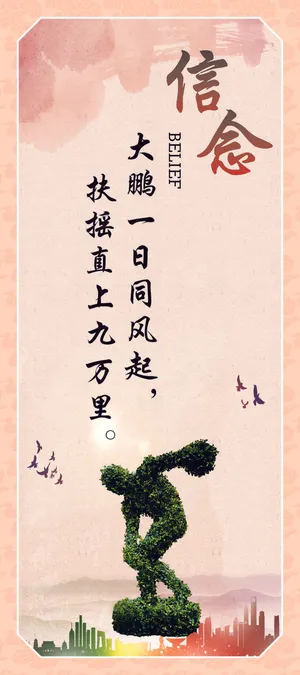 信念
BELIEF
大鹏一日同风起，
扶摇直上九万里。